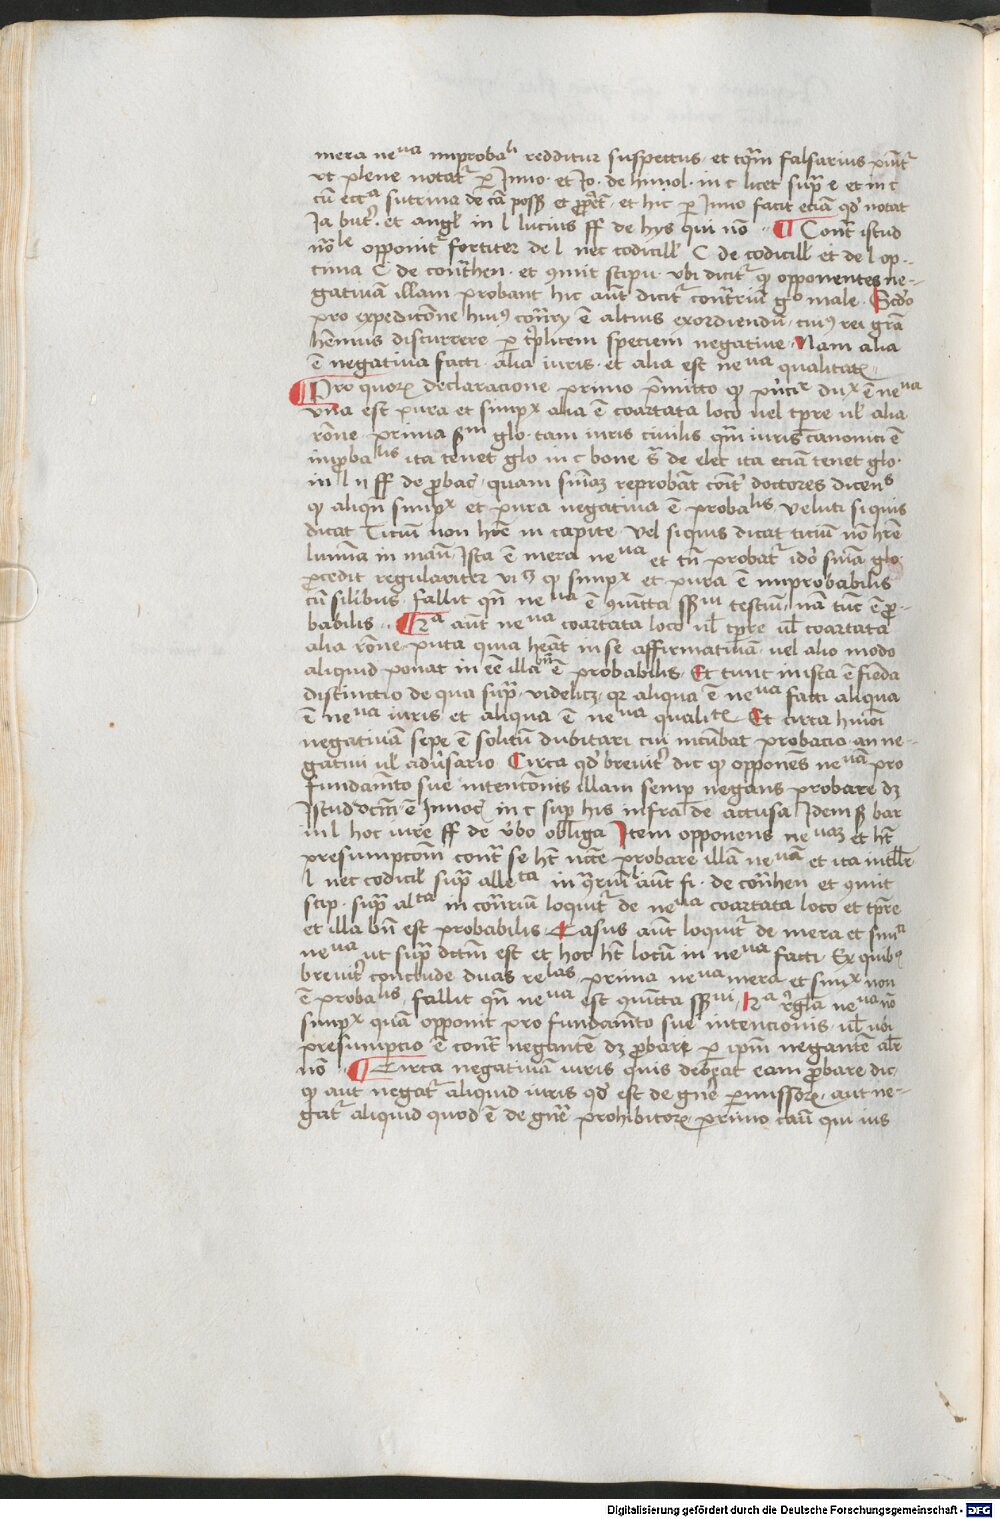 mera neua improbal redditur suspectus et tqm falsarius punit
vt plene notatr per Inno et Jo. de himol. in c licet supra e et in c
cum eccia sutrina de ca poss et propt et hic per Inno facit eciam qd notat
Ja but. et angl in l lucius ff de hys qui no ¶ Cont istud
nole opponitr fortiter de l nec codicill C de codicill et de l op-
tima C de conthen et qmit stipu vbi dicitr qp opponentes ne-
gativam illam probant hic aut dicitr contrium go male Scdo
pro expeditone huius contry e altius exordiendu cuius rei gra
hemus discurrere per triplitem speciem negative Nam alia
e negativa facti alia iuris et alia est neua qualitatis
¶ Pro quorum declaracione primo premitto qp princir dux e neua
vna est pura et simpx alia e coartata loco vel tpre ul alia
rone prima sm glo tam iuris civilis qm iuris canonici e
improbalis ita tenet glo in c bone s de elec ita eciam tenet glo
in l ii ff de probac quam sniam reprobat cont doctores dicens
qp aliqn simpx et pura negativa e probalis veluti siquis
dicat Titium non hre in capite vel siquis dicat titium no hre
lumina in manu Ista e mera neua et tn probatr ido snia glo
procedit regulariter vi qp simpx et pura e improbabilis
cu silibus fallit qn neua e quintta ssui testium nam tunc e pro-
babilis ¶ 2a aut neua coartata loco ul tpre ul coartata
alia rone puta quia heat in se affirmativam vel alio modo
aliquid ponat in ee illa bn e probabilis Et tunc in ista e fienda
distinctio de qua supra videlicz qr aliqua e neua facti aliqua
e neua iuris et aliqua e neua qualitis Et circa humoi
negativam sepe e solitum dubitari cui incumbat probacio an ne-
gativi ul adversario Circa qd breviter dic qp opponens neuam pro
fundamto sue intencionis illam semper negans probare dz
Istud dictum e Innoc in c super his infra de accusa Idem s bar
in l hoc iure ff de verbo obliga Item opponens neuaz et ht
presumptom cont se ht necce probare illa neuam et ita intllr
l nec codicil supra allecta in contrium aut fi de conthen et qmit
stip supra alta in contrium loquitr de neua coartata loco et tpre
et illa bn est probabilis Casus aut loquitr de mera et simia
neua ut supra dctm est et hoc ht locum in neua facti Ex quibus
breviter conclude duas relas prima neua mera et simx non
e probalis fallit qn neua est quintta ssui 2a regla neua no
simpx quam opponit pro fundamto sue intencionis ul ubi
presumpcio e cont negantem dz probare per ipm negantem alr
no ¶ Circa negativam iuris quis debeat eam probare dic
qp aut negatr aliquid iuris qd est de gne permissorum aut ne-
gatr aliquid quod e de gne prohibitorum primo casu qui ius
Digitalisierung gefördert durch die Deutsche Forschungsgemeinschaft - DFG